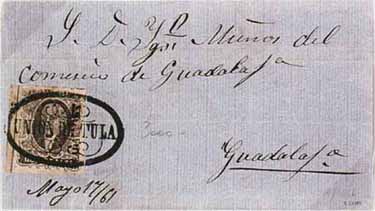 S. D. Ygº Muños del
comercio de Guadalajª
UNION DE TULA
Guadalajª
Mayo 17/61